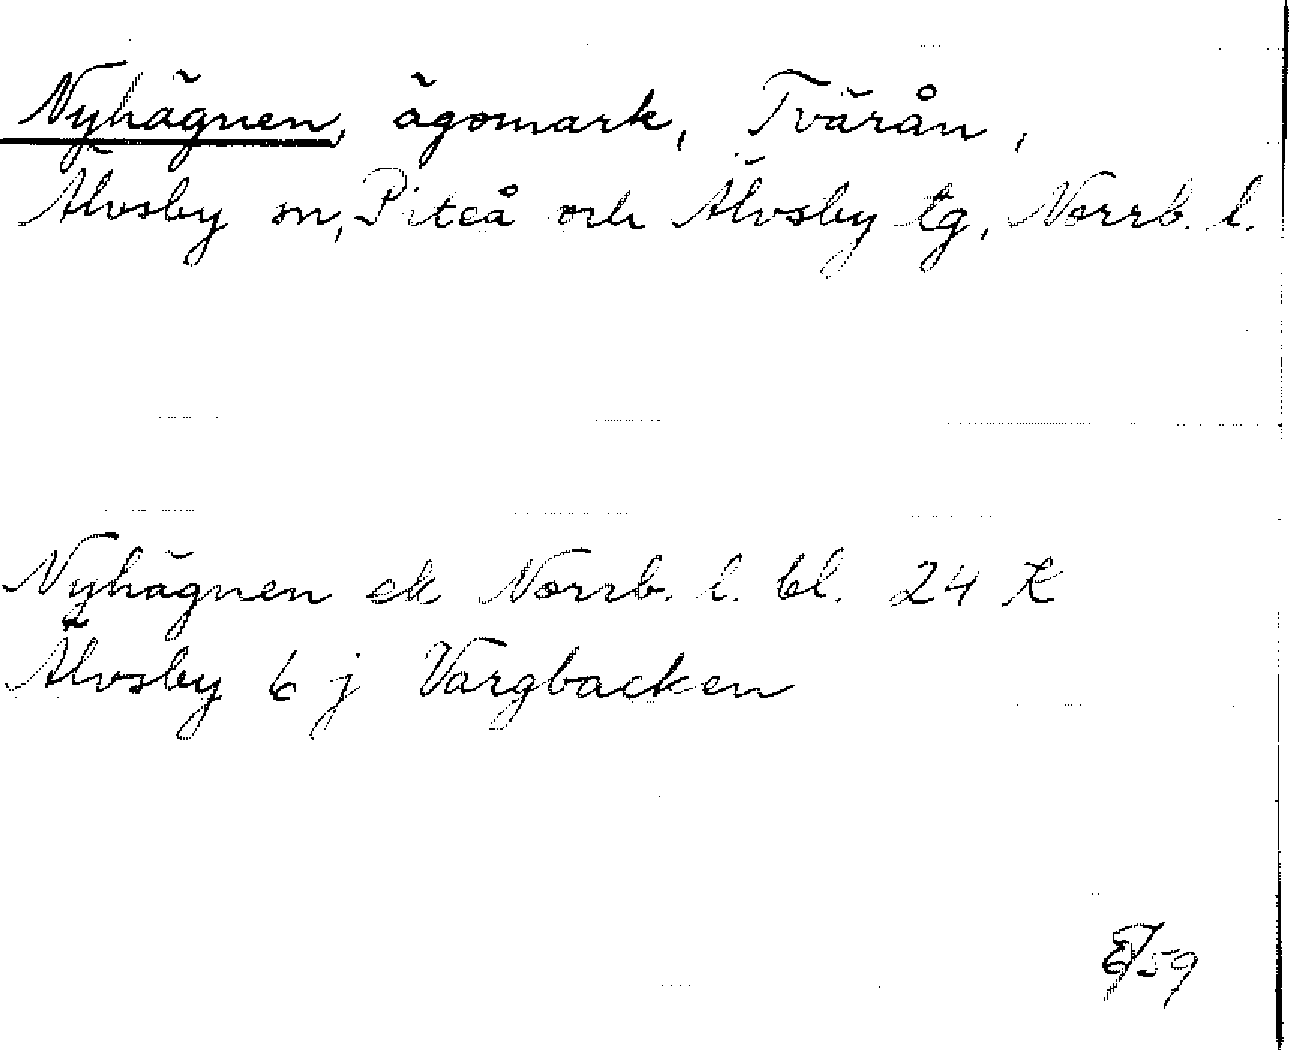 Nyhägnen, ägomark, Tvärån,
Älvsby sn, Piteå och Älvsby tg, Norrb. l.
Nyhägnen ek Norrb. l. bl. 24 K
Älvsby 6 j Vargbacken
/59